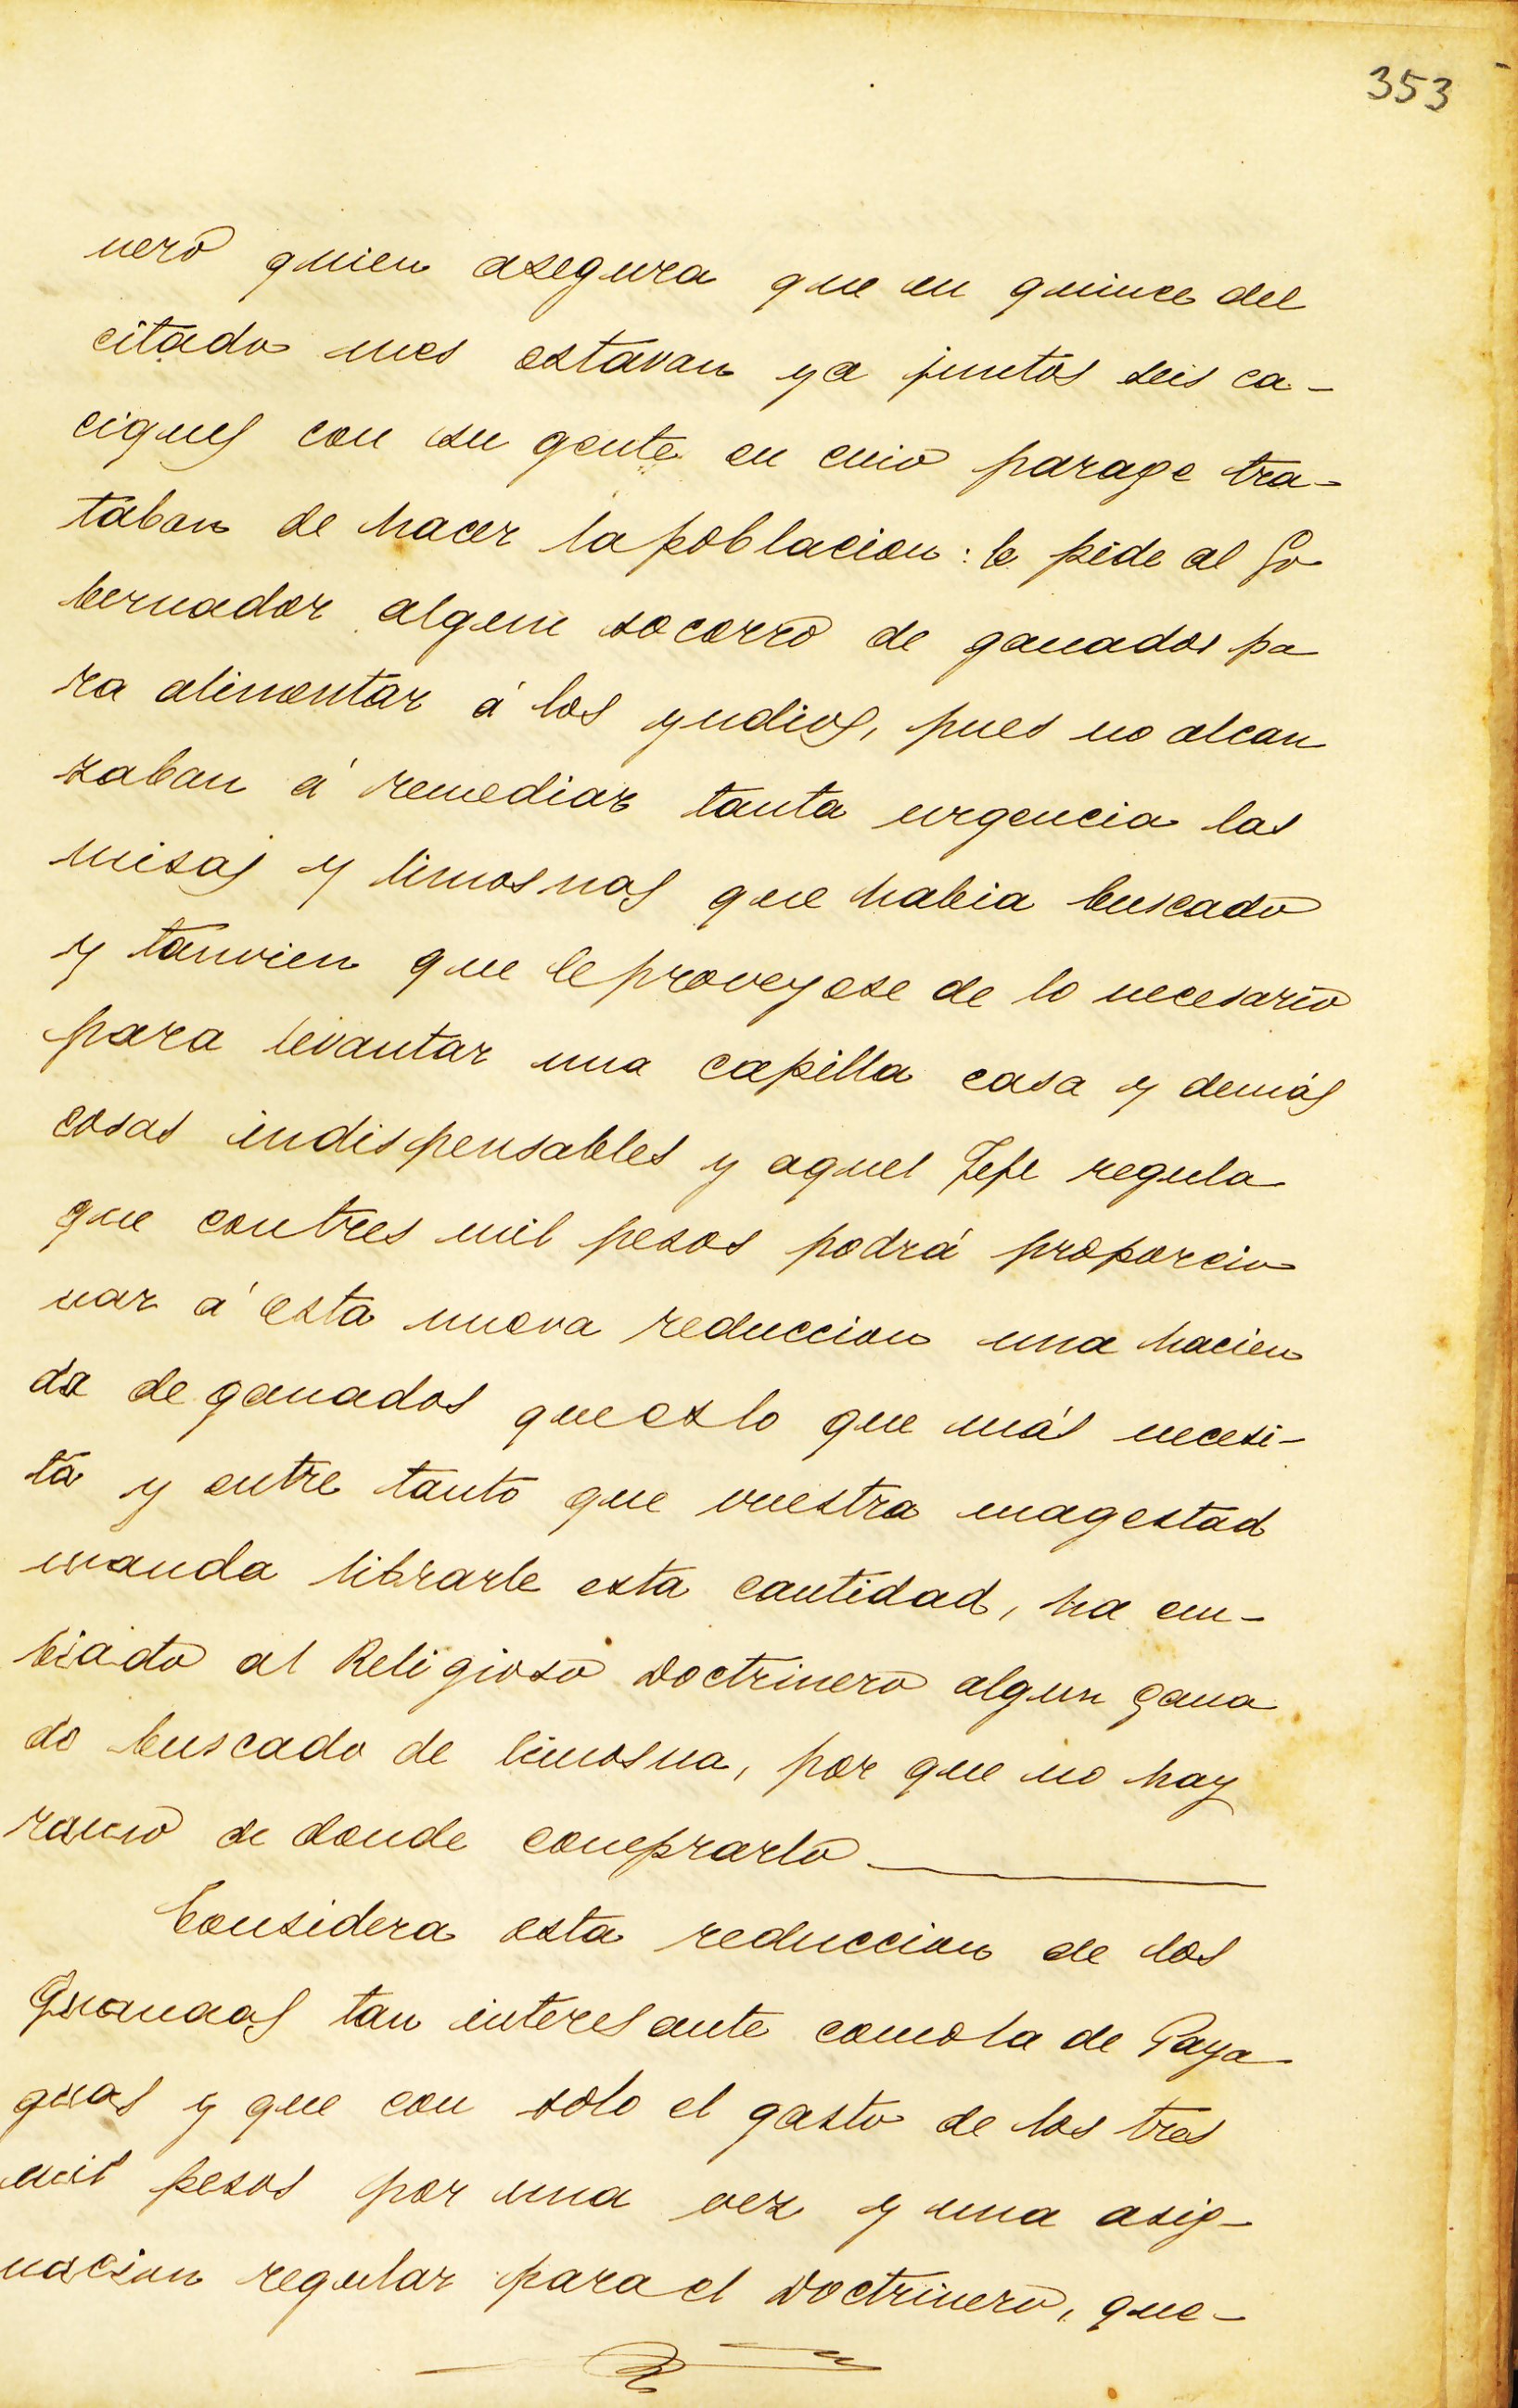 353
nero quien asegura que en quince del
citado mes estavan ya juntos seis ca-
ciques con su gente en cuio parage tra-
taban de hacer la poblacion: le pide al Go
bernador algun socorro de ganados pa
ra alimentar á los yndios, pues no alcan
zaban á remediar tanta urgencia las
misas y limosnas que habia buscado
y tanvien que le proveyese de lo necesario
para levantar una capilla casa y demás
cosas indispensables y aquel Jefe regula
que con tres mil pesos podrá proporcio
nar á esta nueva reduccion una hacien
da de ganados que es lo que más necesi-
ta y entre tanto que vuestra magestad
manda librarle esta cantidad, ha em-
biado al Religioso Doctrinero algun gana
do buscado de limosna, por que no hay
ramo de donde comprarlo
Considera esta reduccion de los
Guanaas tan interesante como la de Paya
guas y que con solo el gasto de los tres
mil pesos por una vez y una asig-
nacion regular para el Doctrinero, que-